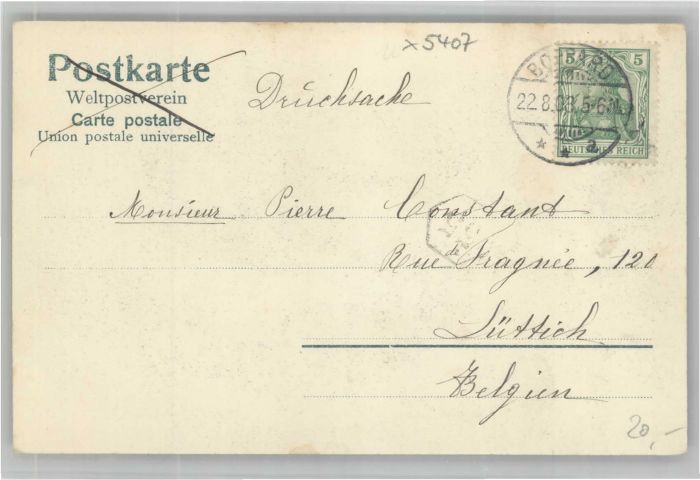 x5407
Postkarte
Weltpostverein
Carte postale
Union postale universelle
Drucksache
5 5
DEUTSCHES REICH
22.8.03. 5-6N.
a
Monsieur Pierre Constant
Rue de Fragnée, 120
Lüttich
Belgien
20,-